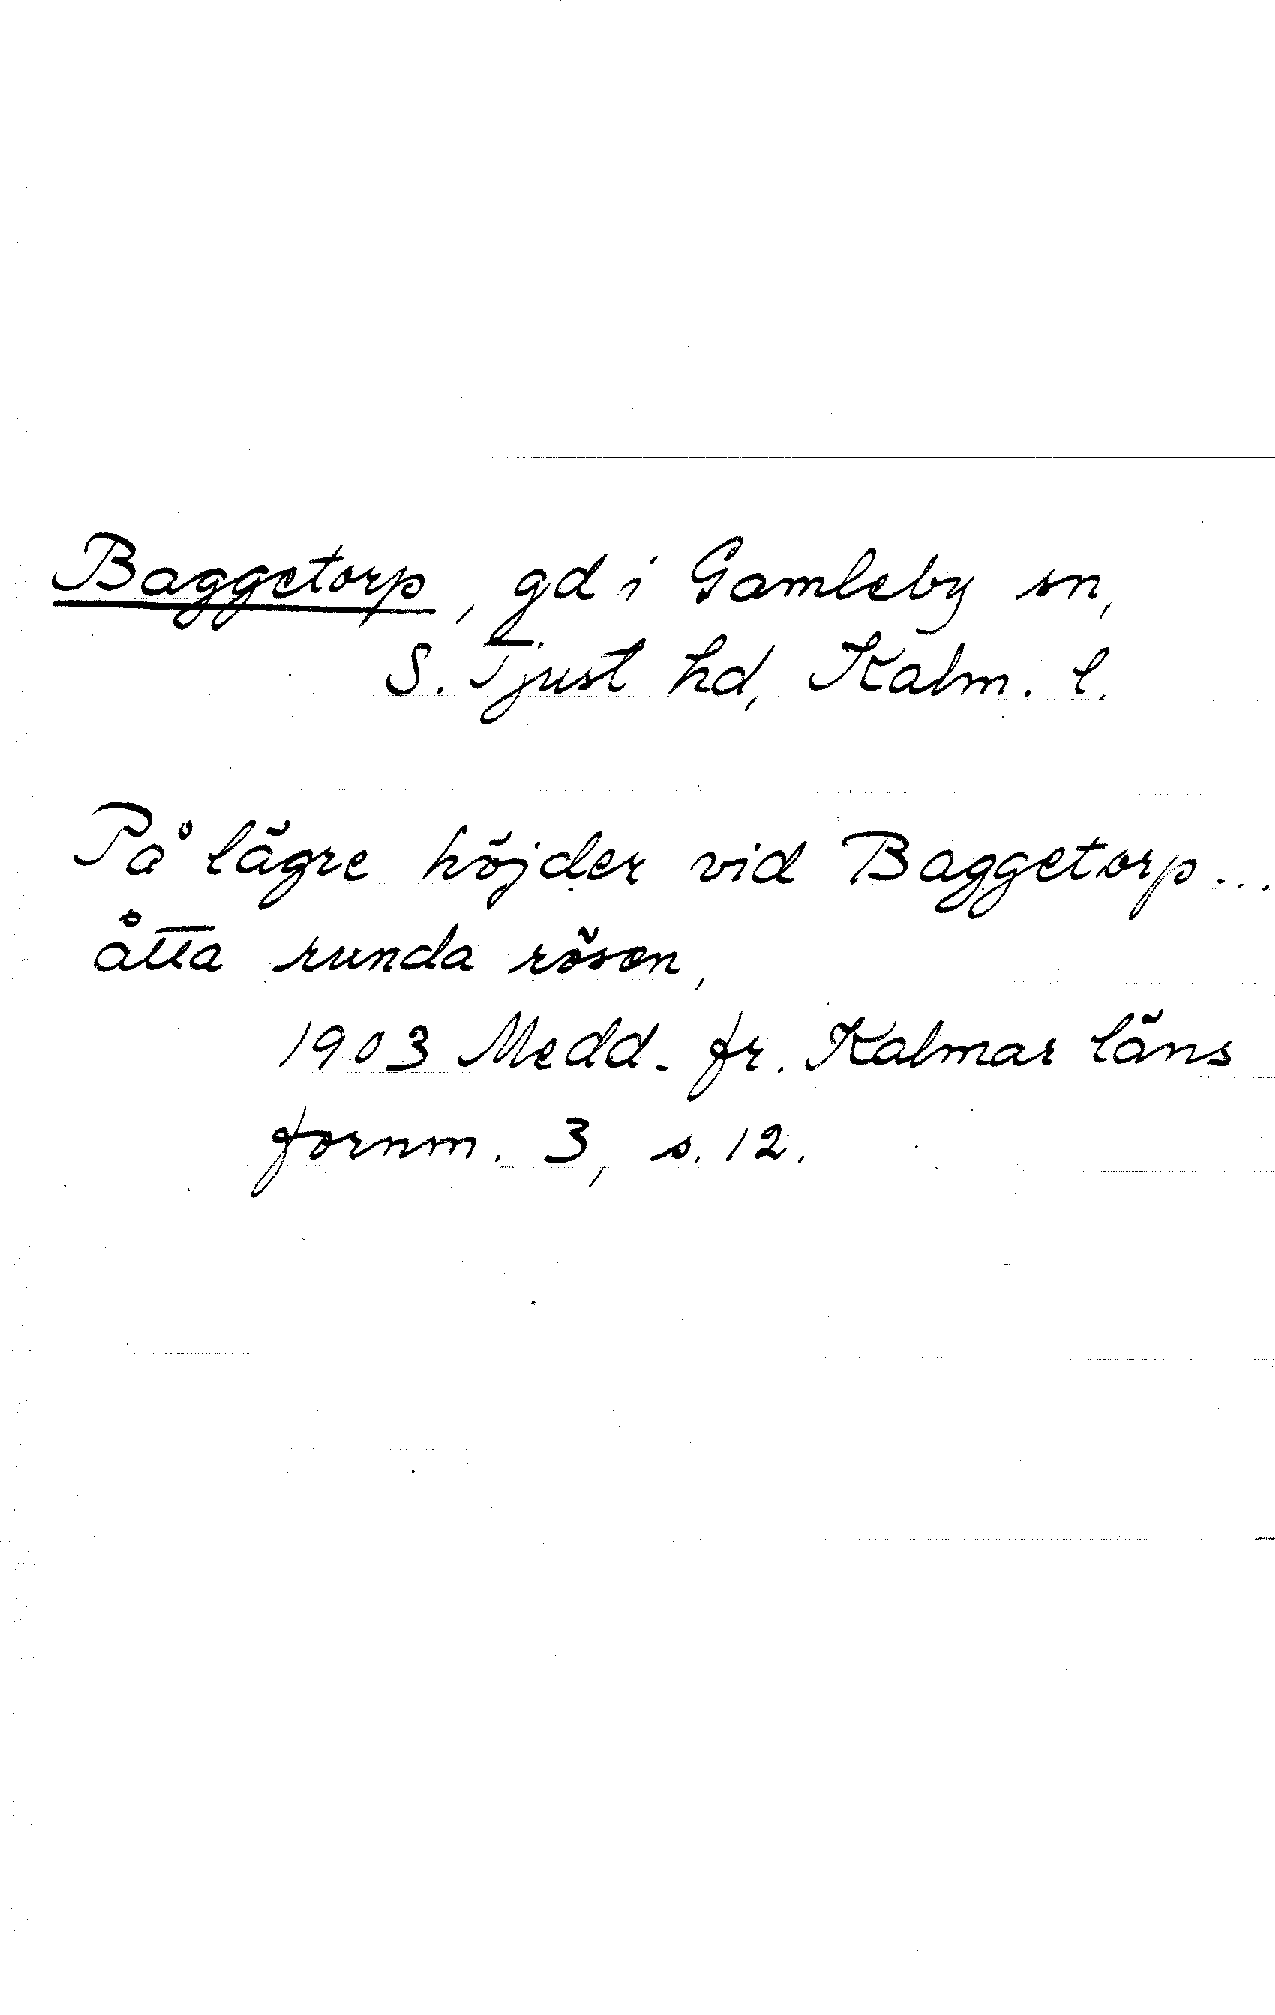 Baggetorp, gd i Gamleby sn,
S. Tjust hd, Kalm. l.
På lägre höjder vid Baggetorp...
åtta runda rösen,
1903 Medd. fr. Kalmar läns
fornm. 3, s. 12.